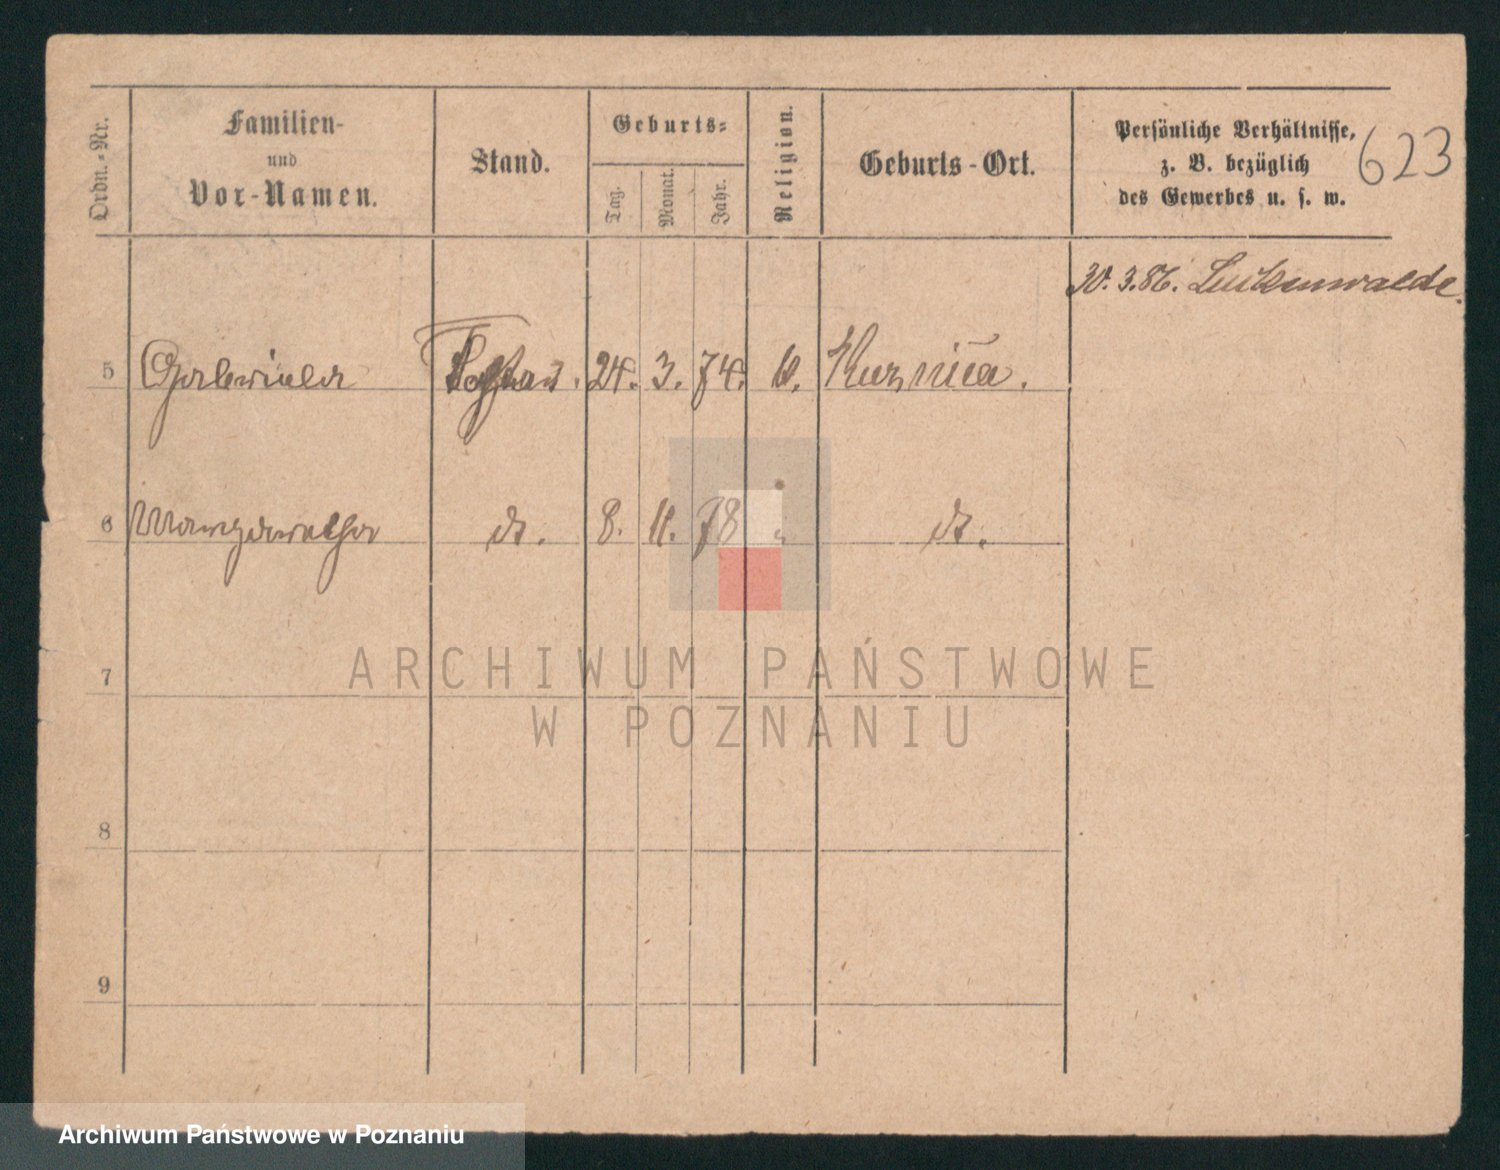 Ordn.-Nr.
Familien-
und
Vor-Namen.
Stand.
Geburts-
Tag.
Monat.
Jahr.
Religion.
Geburts-Ort.
Persönliche Verhältnisse,
z. B. bezüglich
des Gewerbes u. s. w.
623
30. 3. 86. Luckenwalde.
5 Gabriela 24. 3. 74. Kuznica.
6 dt. 8. 11. 78 " dt.
7
8
9
ARCHIWUM PAŃSTWOWE
W POZNANIU
Archiwum Państwowe w Poznaniu